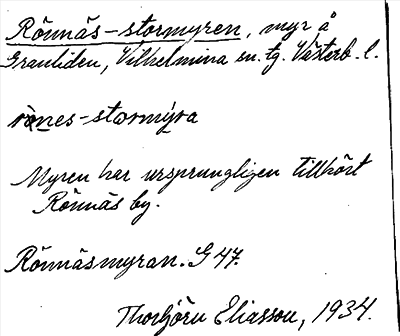 Rönnäs-stormyren, myr å
Granliden, Vilhelmina sn. tg. Västerb. l.
rönes-stormýra
Myren har ursprungligen tillhört
Rönnäs by.
Rönnäsmyran. G 47.
Thorbjörn Eliasson, 1934.